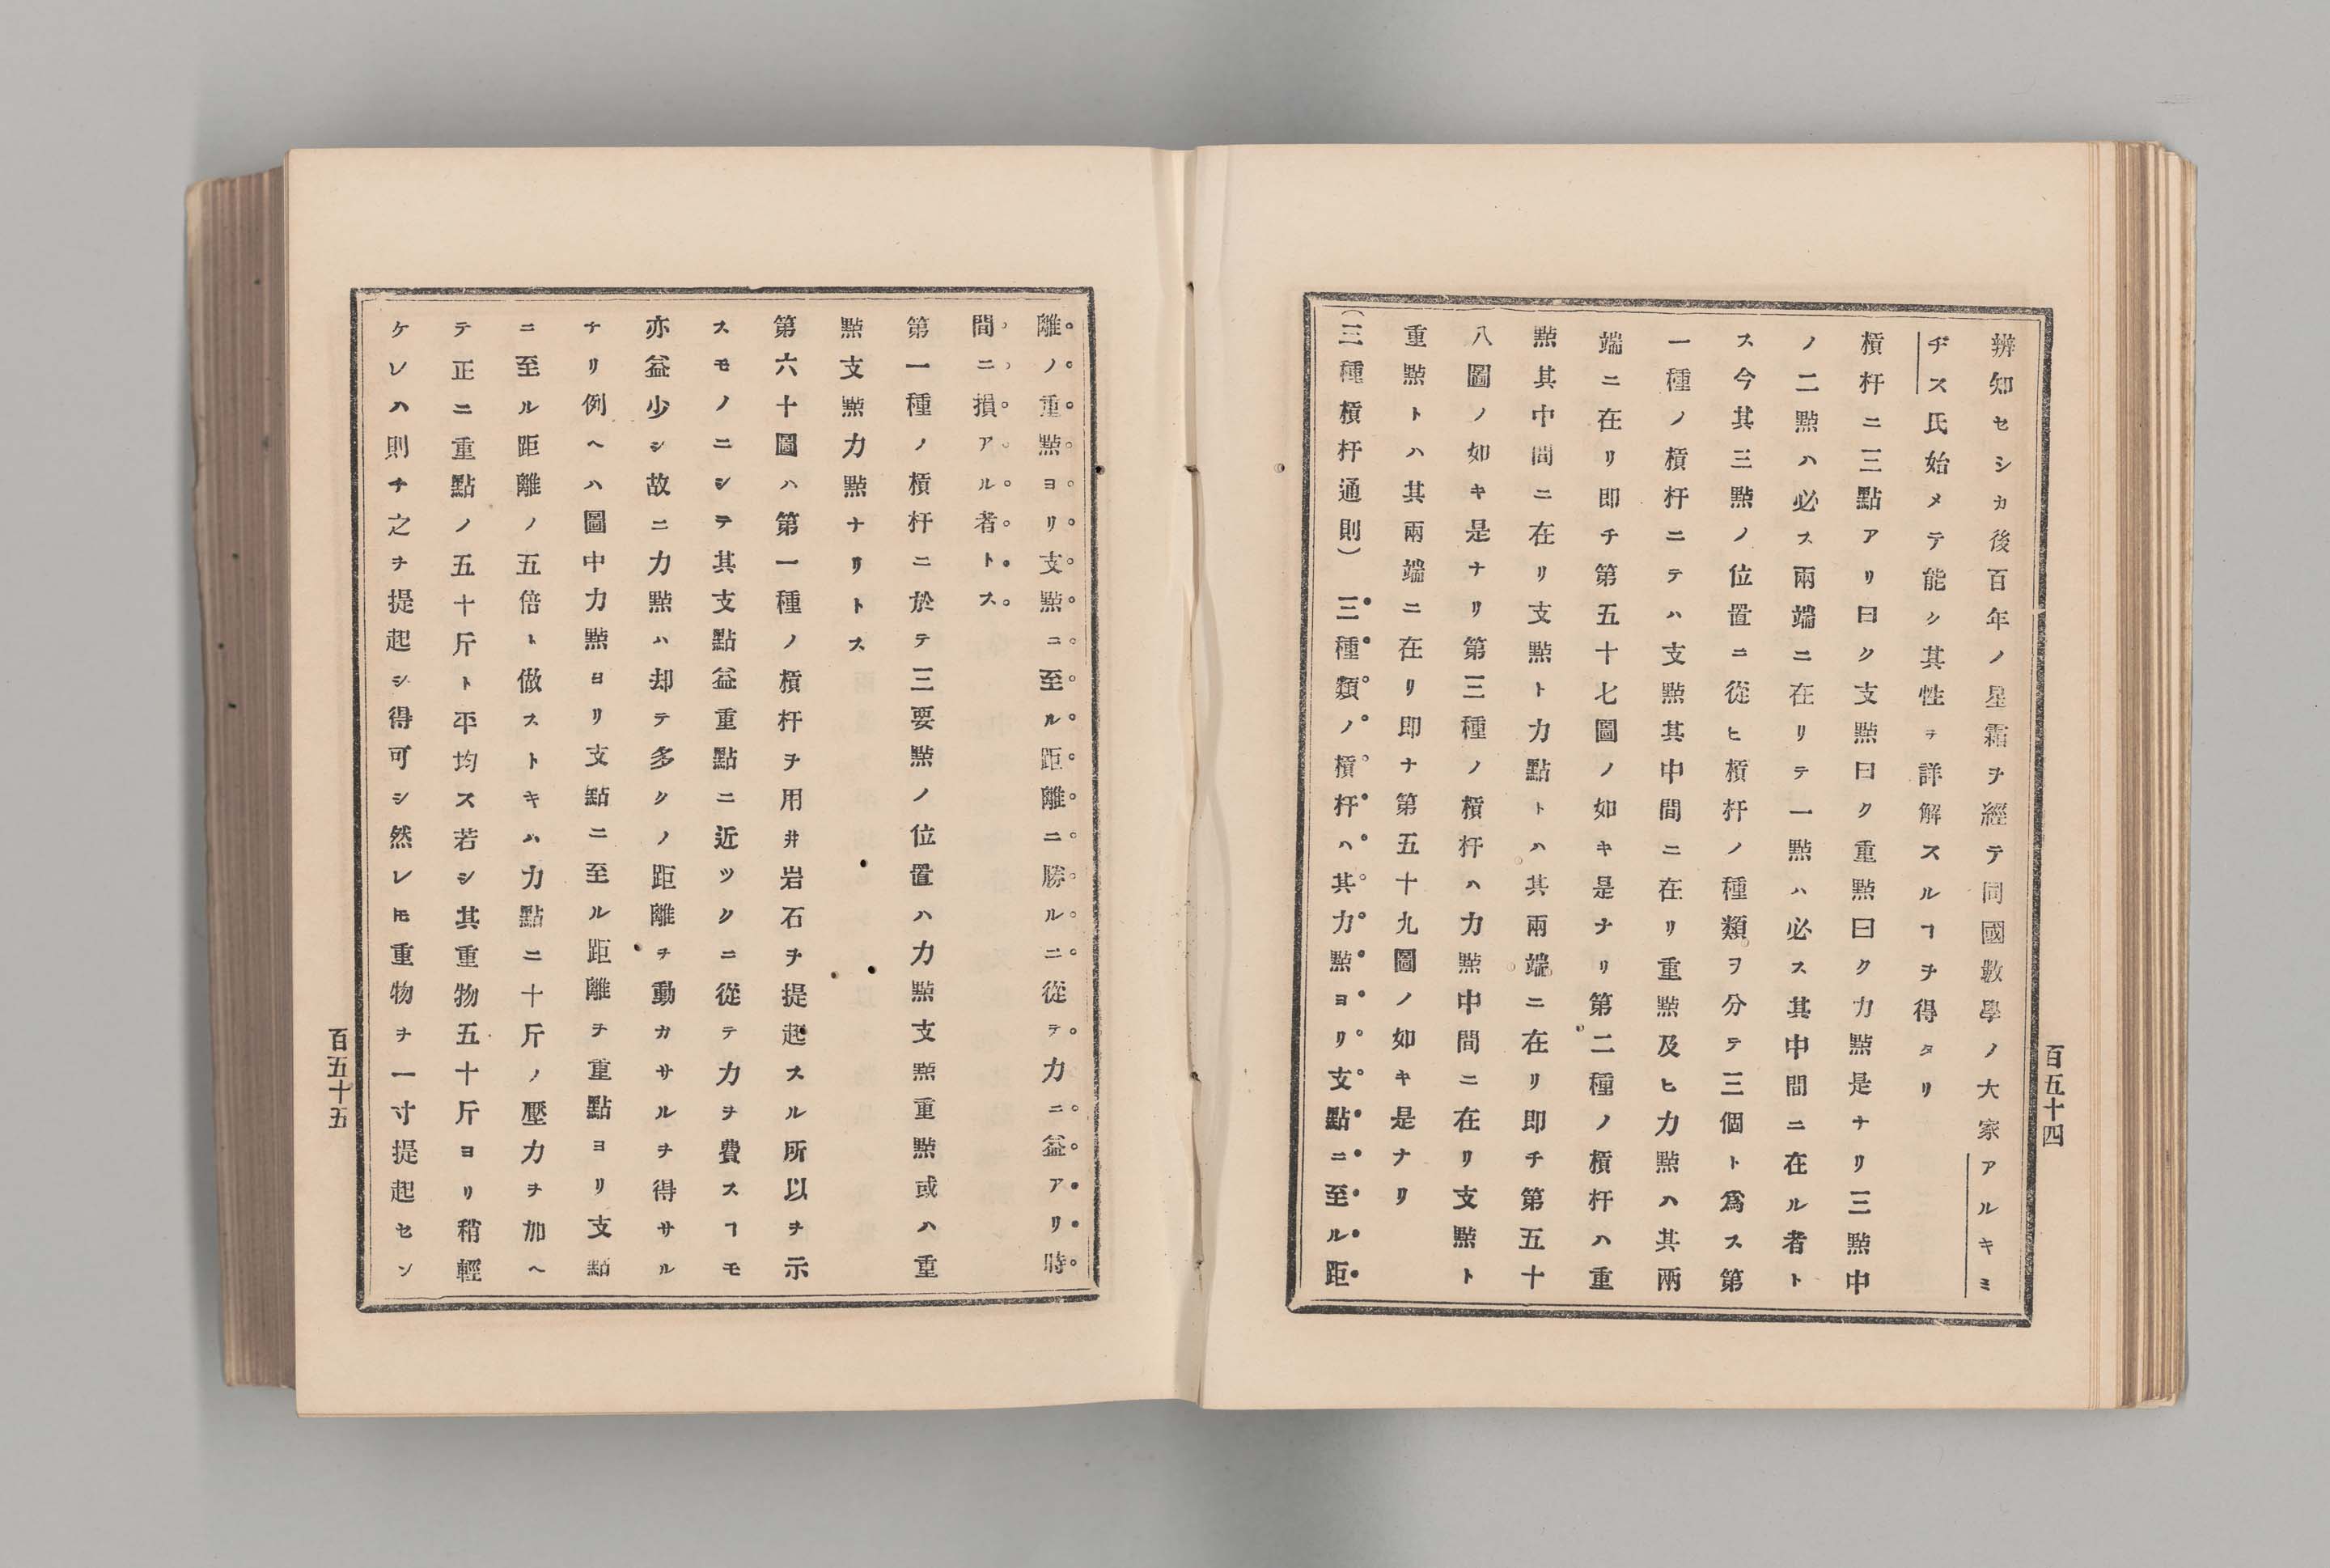 辨知セシカ後百年ノ星霜ヲ經テ同國數學ノ大家アルキミ
ヂス氏始メテ能ク其性ヲ詳解スルヿヲ得タリ
槓杆ニ三點アリ曰ク支點曰ク重點曰ク力點是ナリ三點中
ノ二點ハ必ス兩端ニ在リテ一點ハ必ス其中間ニ在ル者ト
ス今其三點ノ位置ニ從ヒ槓杆ノ種類ヲ分テ三個ト爲ス第
一種ノ槓杆ニテハ支點其中間ニ在リ重點及ヒ力點ハ其兩
端ニ在リ即チ第五十七圖ノ如キ是ナリ第二種ノ槓杆ハ重
點其中間ニ在リ支點ト力點トハ其兩端ニ在リ即チ第五十
八圖ノ如キ是ナリ第三種ノ槓杆ハ力點中間ニ在リ支點ト
重點トハ其兩端ニ在リ即ナ第五十九圖ノ如キ是ナリ
(三種槓杆通則)三種類ノ槓杆ハ其力點ヨリ支點ニ至ル距
百五十四
離ノ重點ヨリ支點ニ至ル距離ニ勝ルニ從テ力ニ益アリ時
間ニ損アル者トス
第一種ノ槓杆ニ於テ三要點ノ位置ハ力點支點重點或ハ重
點支點力點ナリトス
第六十圖ハ第一種ノ槓杆ヲ用井岩石ヲ提起スル所以ヲ示
スモノニシテ其支點益重點ニ近ツクニ從テ力ヲ費スヿモ
亦益少シ故ニ力點ハ却テ多クノ距離ヲ動カサルヲ得サル
ナリ例ヘハ圖中力點ヨリ支點ニ至ル距離ヲ重點ヨリ支點
ニ至ル距離ノ五倍ト做ストキハ力點ニ十斤ノ壓力ヲ加ヘ
テ正ニ重點ノ五十斤ト平均ス若シ其重物五十斤ヨリ稍輕
ケレハ則チ之ヲ提起シ得可シ然レ𪜈重物ヲ一寸提起セン
百五十五